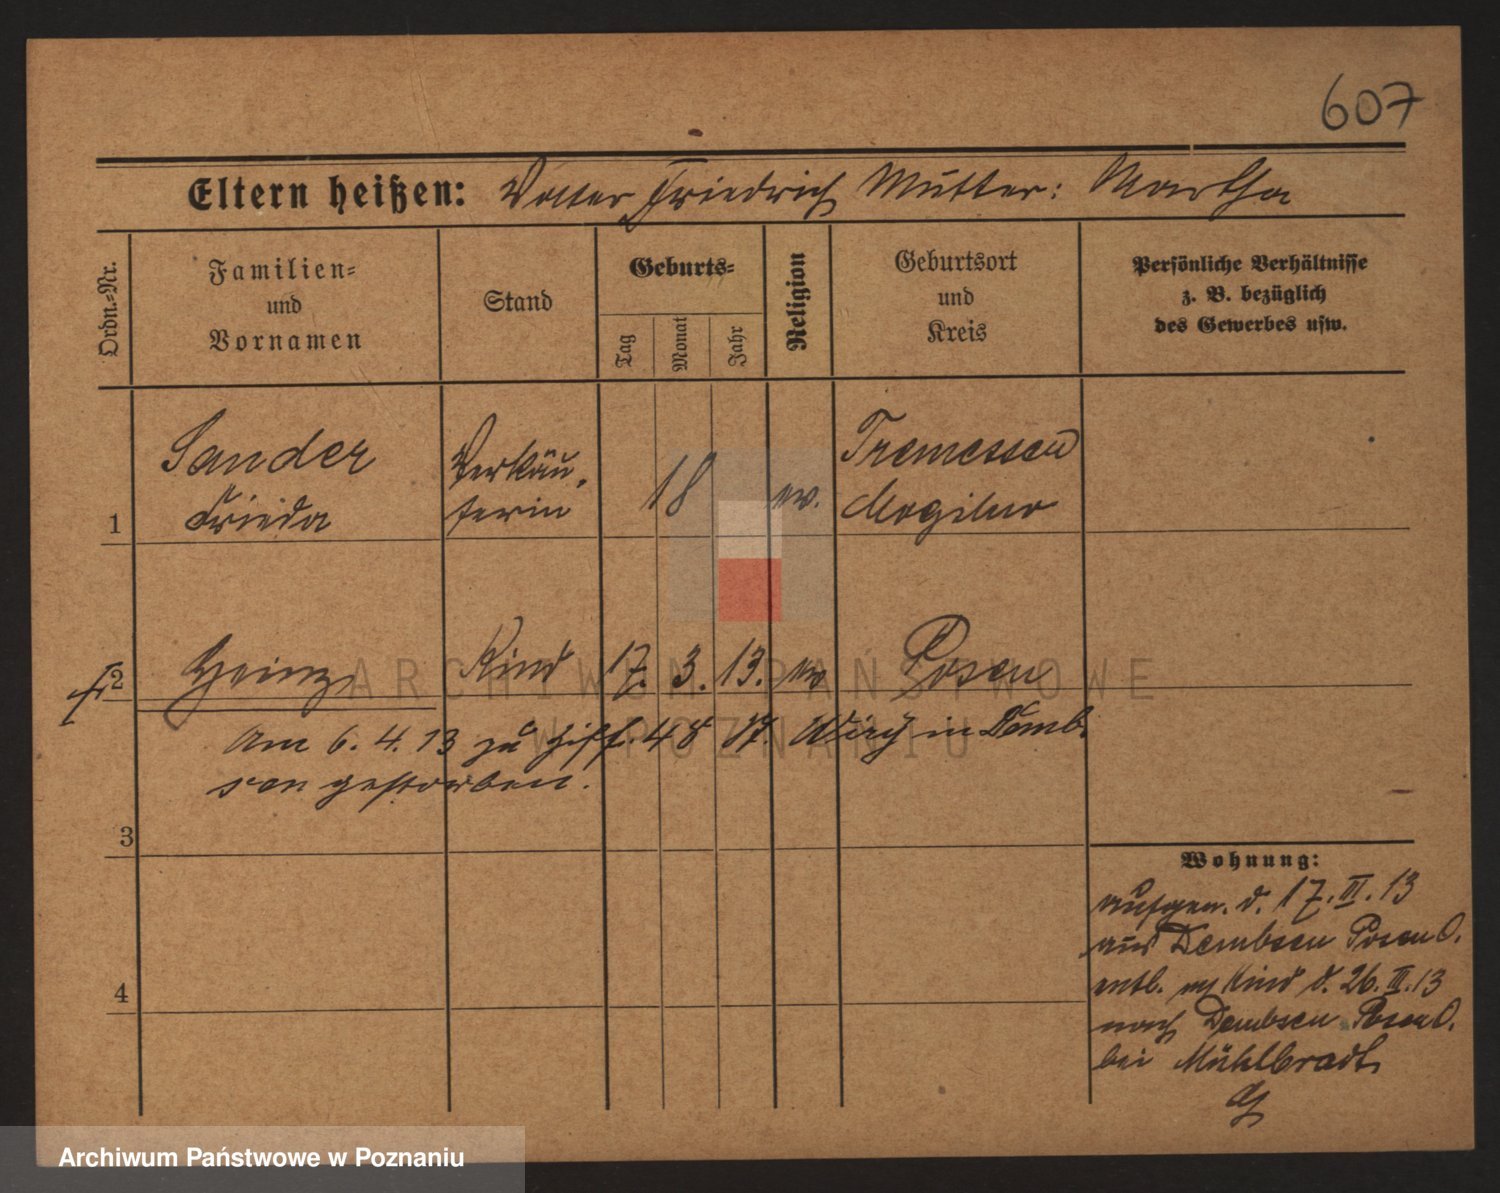 607
Eltern heißen: Vatter Friedrich Mutter: Martha
Ordn.-Nr.
Familien-
und
Vornamen
Stand
Geburts-
Tag
Monat
Jahr
Religion
Geburtsort
und
Kreis
Persönliche Verhältnisse
z. B. bezüglich
des Gewerbes usw.
1
Sander
Frieda
Verkäu-
ferin
18
ev.
Tremessen
Mogilno
2
Heinz
Kind
17. 3. 13.
ev
Posen
Am 6. 4. 13 zu 48 in Demb-
sen gestorben.
3
4
Wohnung:
aufgen. d. 17. III. 13
aus Dembsen Posen O.
entl. m Kind d. 26. III. 13
nach Dembsen Posen O.
bei Mühlbradt
ARCHIWUM PAŃSTWOWE
W POZNANIU
Archiwum Państwowe w Poznaniu